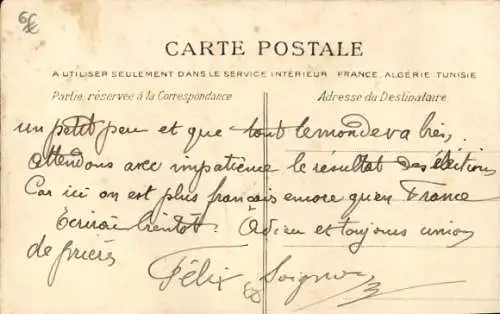 CARTE POSTALE
A UTILISER SEULEMENT DANS LE SERVICE INTÉRIEUR FRANCE, ALGÉRIE TUNISIE
Partie réservée à la Correspondance
Adresse du Destinataire.
un petit peu et que tout le monde va bien,
attendons avec impatience le résultat des élections
Car ici on est plus français encore qu'en France
Ecrirai bientôt. Adieu et toujours union
de prières
Félix